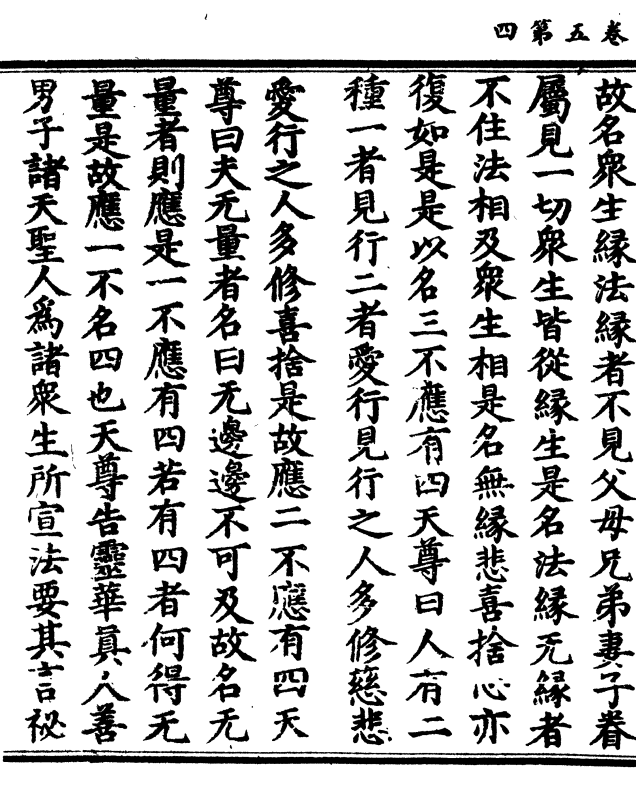 卷五第四
故名衆生縁法縁者不見父母兄弟妻子眷
屬見一切衆生皆從縁生是名法縁无縁者
不住法相及衆生相是名無縁悲喜捨心亦
復如是是以名三不應有四天尊曰人有二
種一者見行二者愛行見行之人多修慈悲
愛行之人多修喜捨是故應二不應有四天
尊曰夫无量者名曰无邊邊不可及故名无
量者則應是一不應有四若有四者何得无
量是故應一不名四也天尊告靈華真人善
男子諸天聖人爲諸衆生所宣法要其言祕